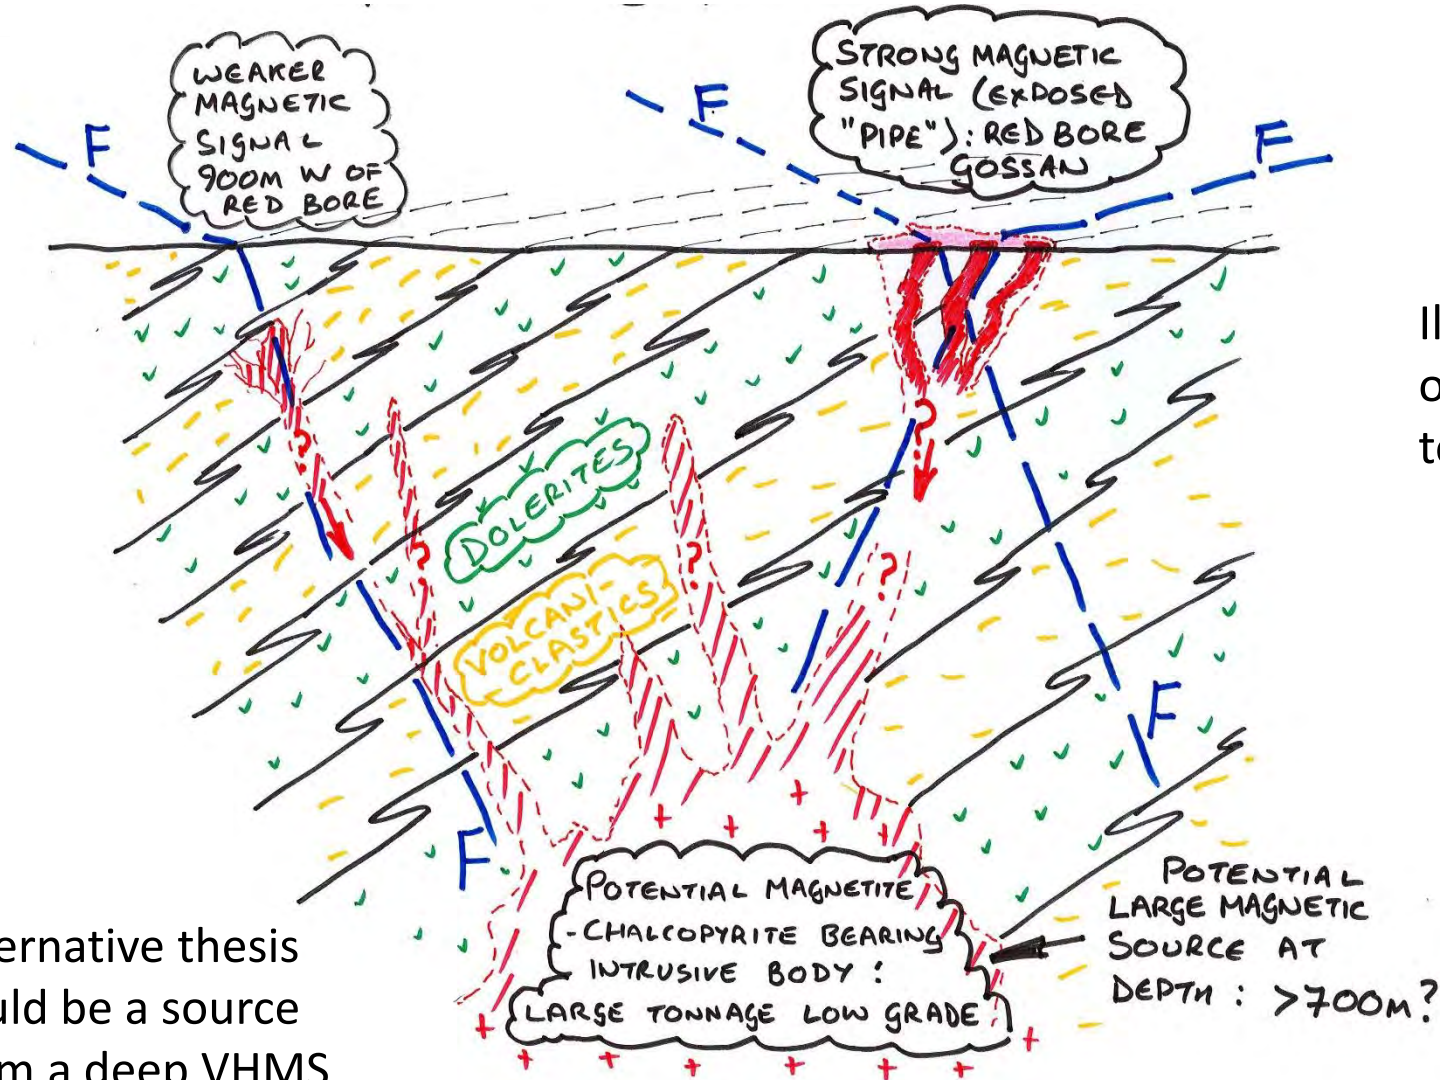 WEAKER
MAGNETIC
SIGNAL
900M W OF
RED BORE
STRONG MAGNETIC
SIGNAL (EXPOSED
"PIPE"): RED BORE
GOSSAN
F
F
F
?
?
?
?
?
DOLERITES
VOLCANI-
CLASTICS
F
F
POTENTIAL MAGNETITE
-CHALCOPYRITE BEARING
INTRUSIVE BODY:
LARGE TONNAGE LOW GRADE
POTENTIAL
LARGE MAGNETIC
SOURCE AT
DEPTH: >700M?
ernative thesis
uld be a source
m a deep VHMS